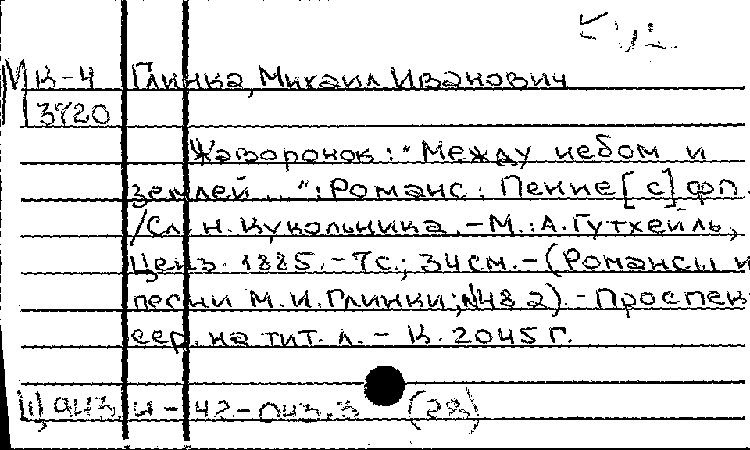 МК-4 Глинка, Михаил Иванович
3720
Жаворонок: "Между небом и
землей...": Романс: Пение [с] фп.
/Сл. Н. Кукольника. - М.: А. Гутхейль,
Ценз. 1885. - 7с.; 34см. - (Романсы и
песни М.И. Глинки; №48 2). - Проспек
сер. на тит. л. - К. 2045 Г.
Ц 943 и - 42-043.3 (28)